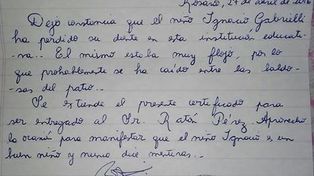 Rosario, 24 de abril de 2016
Dejo constancia que el niño Ignacio Gabrielli
ha perdido su diente en esta institución educati-
va.. El mismo estaba muy flojo, por lo
que probablemente se ha caído entre las baldo-
sas del patio..
Se extiende el presente certificado para
ser entregado al Sr. Ratón Pérez. Aprovecho
la ocasión para manifestar que el niño Ignacio es un
buen niño y nunca dice mentiras..